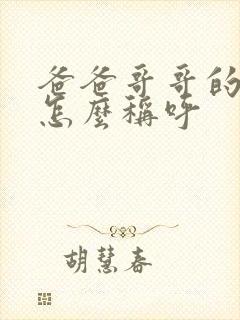 爸爸哥哥的
怎麼稱呼
胡慧春